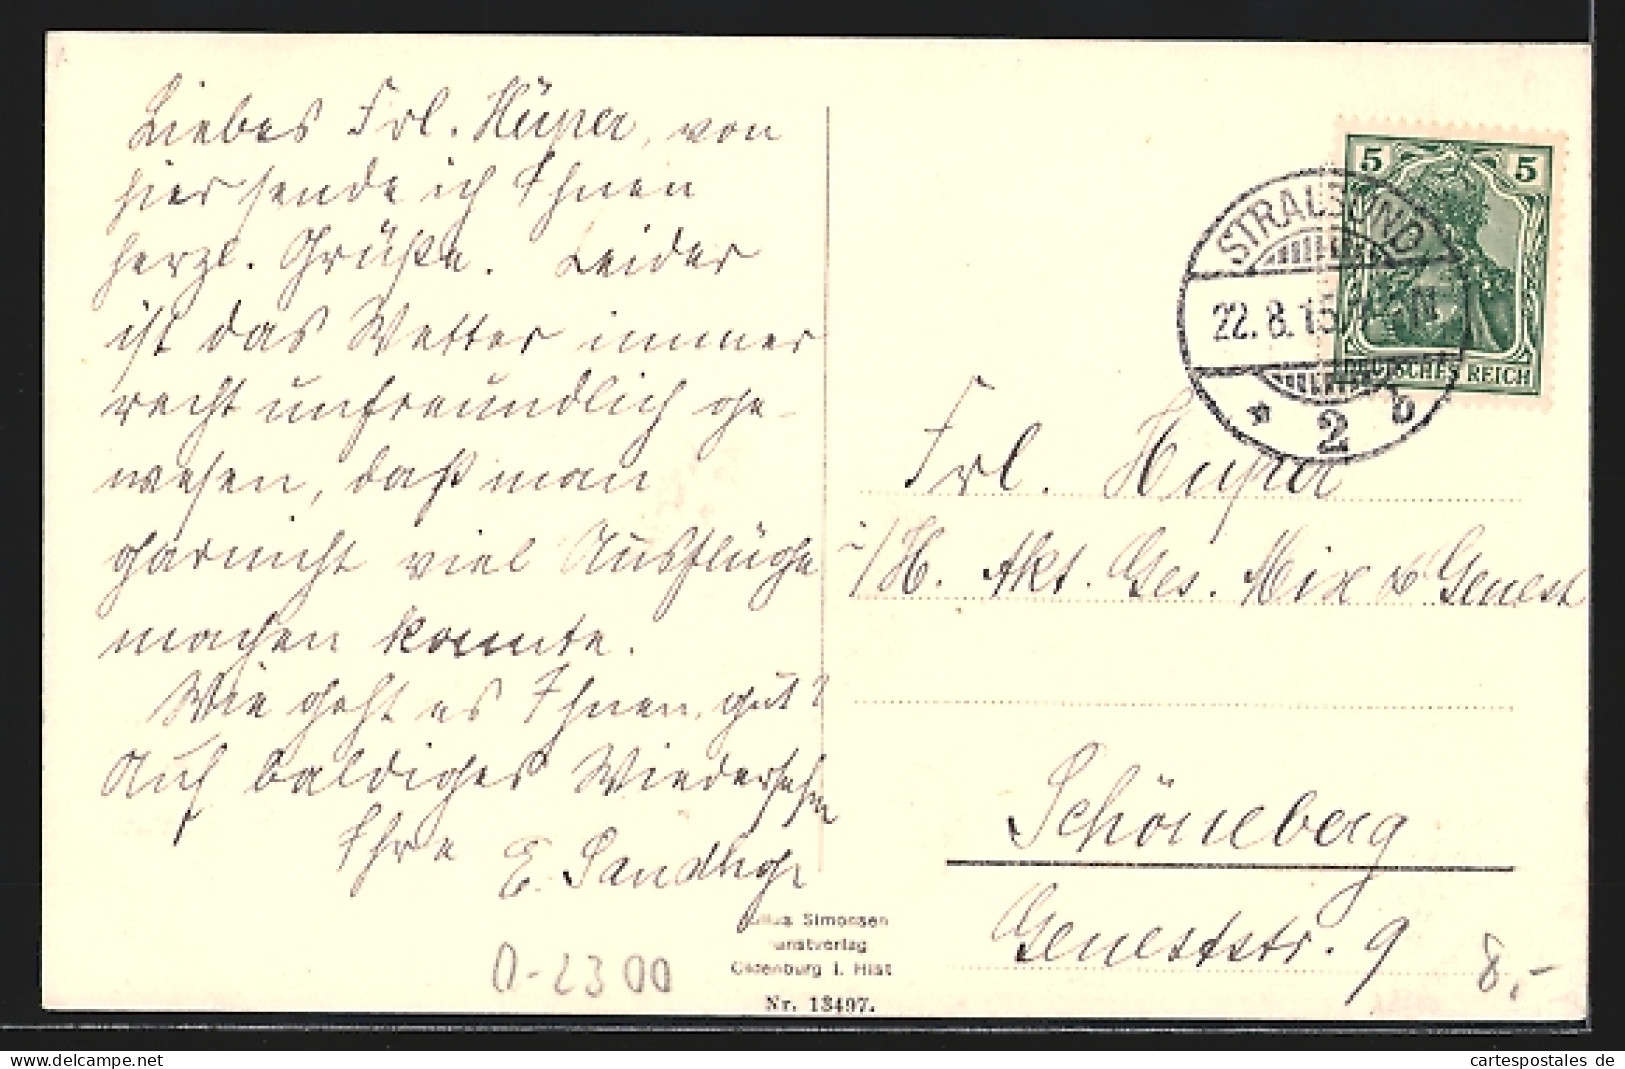 Liebes Frl. Hüper, von
hier sende ich Ihnen
herzl. Grüße. Leider
ist das Wetter immer
recht unfreundlich ge-
wesen, daß man
garnicht viel Ausflüge
machen konnte.
Wie geht es Ihnen, gut?
Auf baldiges Wiedersehn
Ihre E.
5 5
STRALSUND
22.8.15
DEUTSCHES REICH
* 2 b
Frl. Hüper
i/H. Akt. Ges. Mix & Genest
Schöneberg
Geneststr. 9
Julius Simonsen
Kunstverlag
Oldenburg i. Hlst
Nr. 13497.
O-2300
8,-
cartespostales de